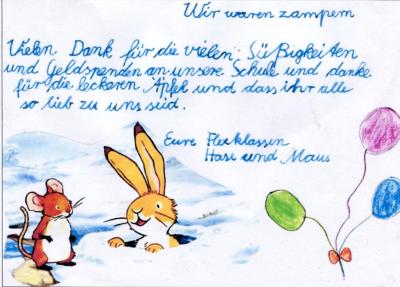 Wir waren zampern
Vielen Dank für die vielen Süßigkeiten
und Geldspenden an unsere Schule und danke
für die leckeren Äpfel und dass ihr alle
so lieb zu uns seid.
Eure Flexklassen
Hase und Maus